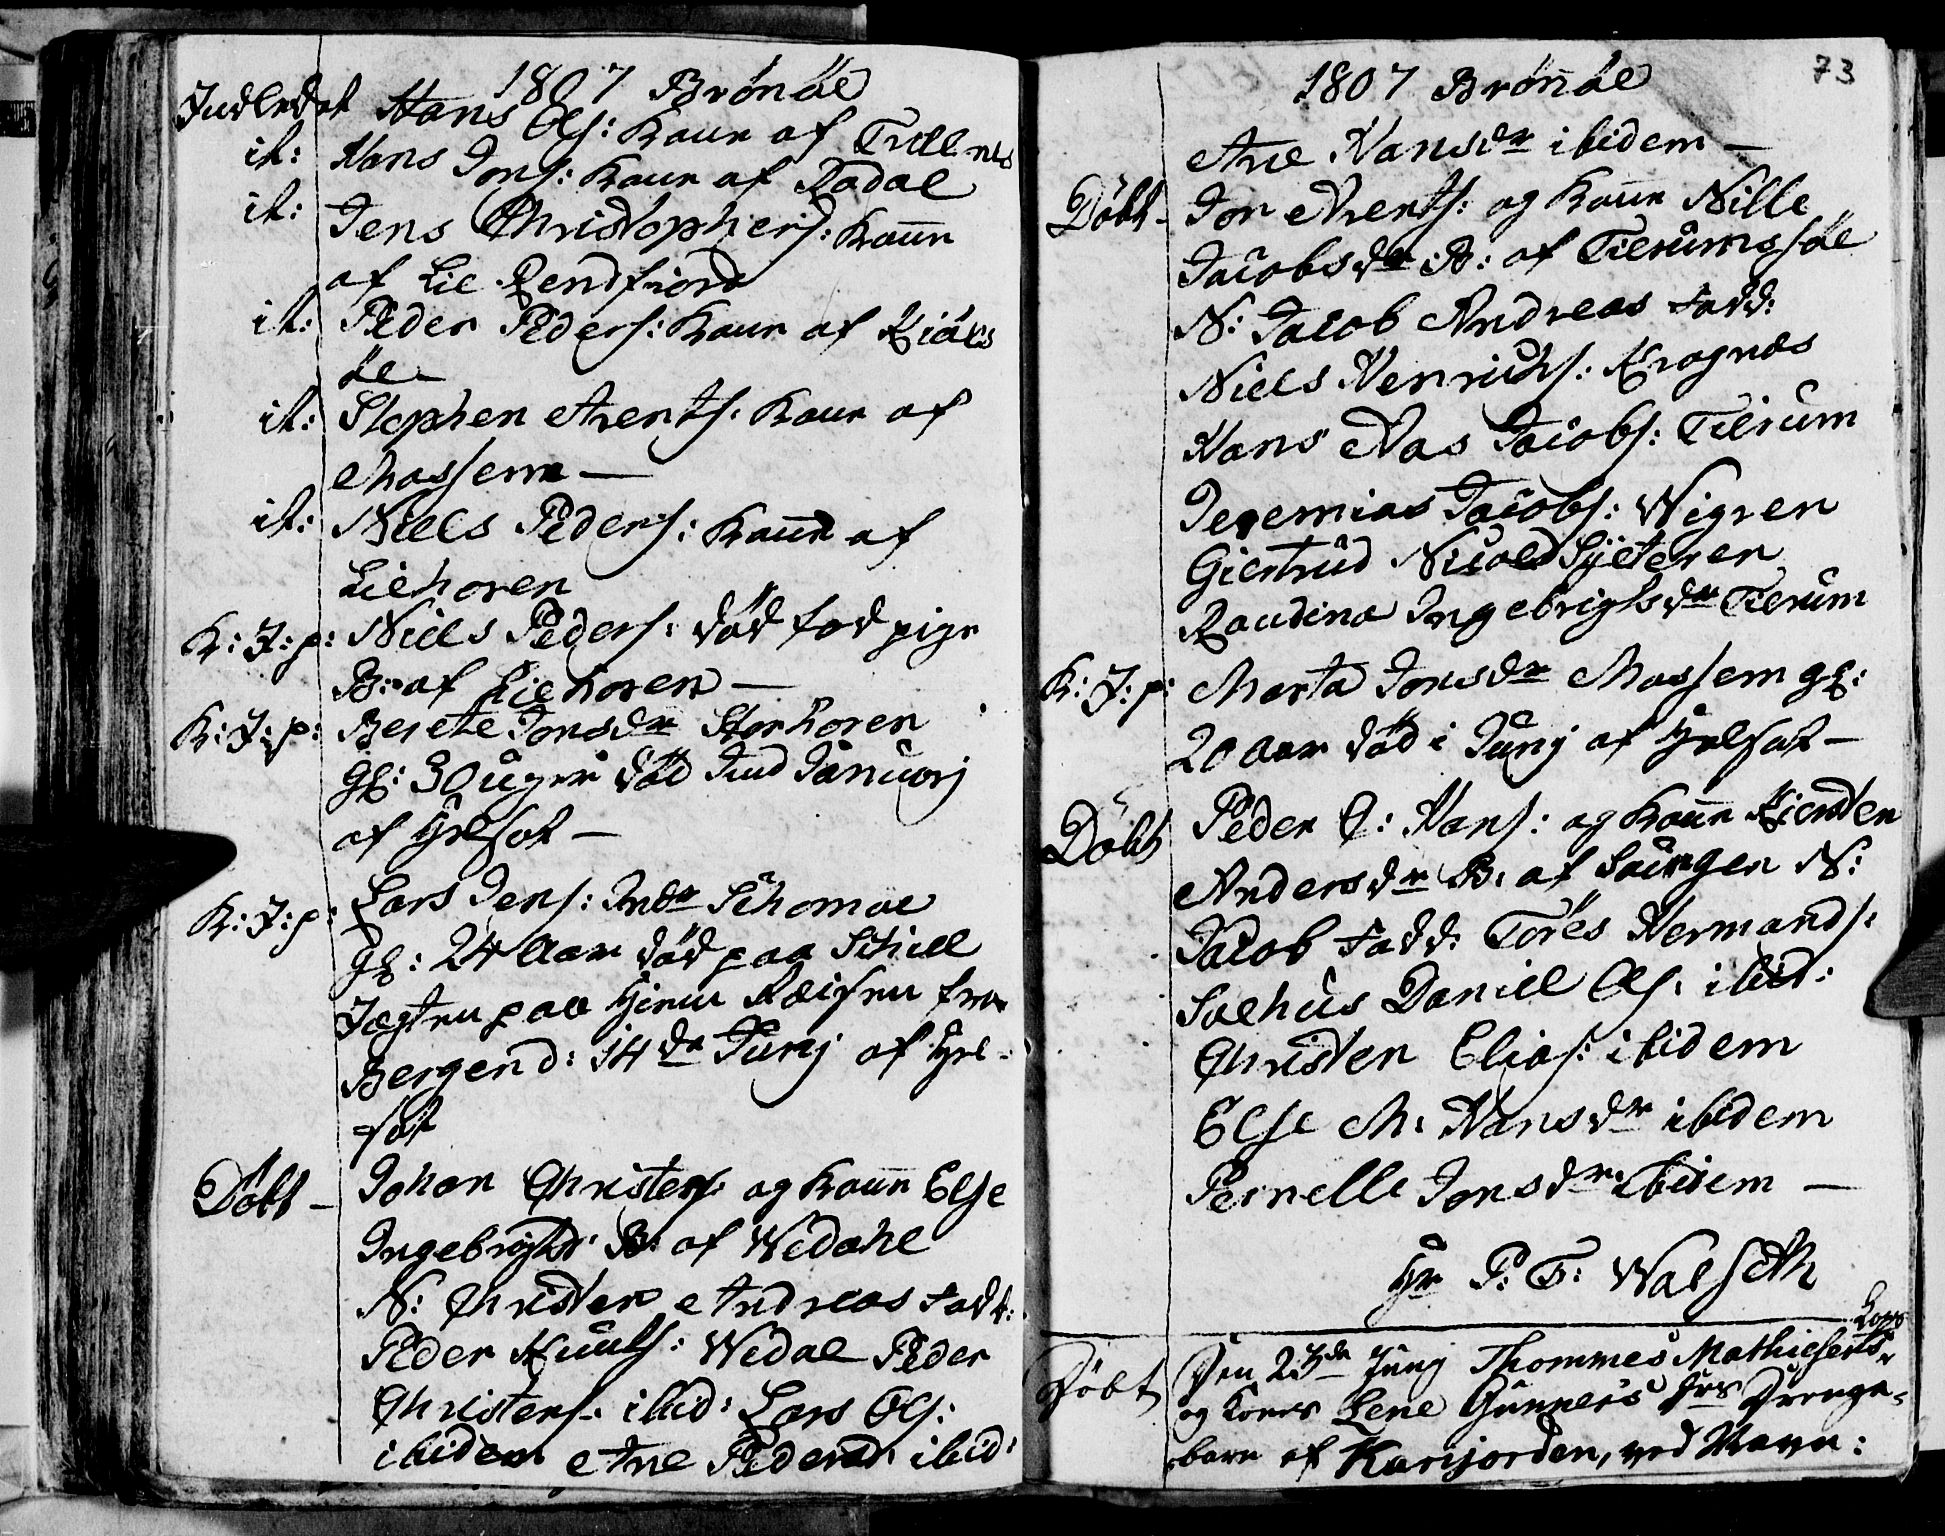 1807 Brönöe
Indledet Hans Ols: Kone af Trælnes
it: Hans Jons: Kone af Rodal
it: Jens Christophers: Kone
af Lie Rendfiord
it: Peder Peders: Kone af Kiöls
öe
it: Stephen Arents: Kone af
Mossem —
it: Niels Peders: Kone af
Liehoren
K: J: p: Niels Peders: död fød pige
B: af Liehoren —
K: J: p: Berete Jonsdr Storhoren
gl: 30 uger död Janüarj
af Helsot —
K: J: p: Lars Jens: Schomoe
gl: 24 Aar död paa
Jægten paa Hiem Reisen fra
Bergen d: 14de Junj af Hel-
sot
Döbt — Johan Christens: og Kone Else
Ingebrigtsdr B: af Wedahl
N: Christen Andreas Fadd:
Peder Knuds: Wedal Peder
Christens: ibid: Lars Ols:
ibidem Ane Pedersdr ibid:
73
1807 Brönöe
Ane Hansdr ibidem —
Döbt — Jon Arents: og Kone Nille
Jacobsdr B: af Tilrumsöe
N: Jacob Andreas Fadd:
Niels Henrichs: Krognes
Hans Aas Jacobs: Tilrum
Jeremias Jacobs: Wigren
Giertrüd Sÿeteren
Randina Ingebrigtsdr Tilrum
K: J: p: Marta Jonsdr Mossem gl:
20 Aar död i Junj af Helsot —
Döbt Peder O: Hans: og Kone Kiersten
Andersdr B: af N:
Jacob Fadd: Töres Hermands:
Soehus Daniel Ols: ibid:
Christen Elias: ibidem
Else M: Hansdr ibidem
Pernelle Jonsdr ibidem —
Hr P: T: Walseth
Döbt Den 23de Junj Thommes Mathiesens
og Kones Lene Gunners Dr Drenge-
barn af Karijorden, ved Navn: